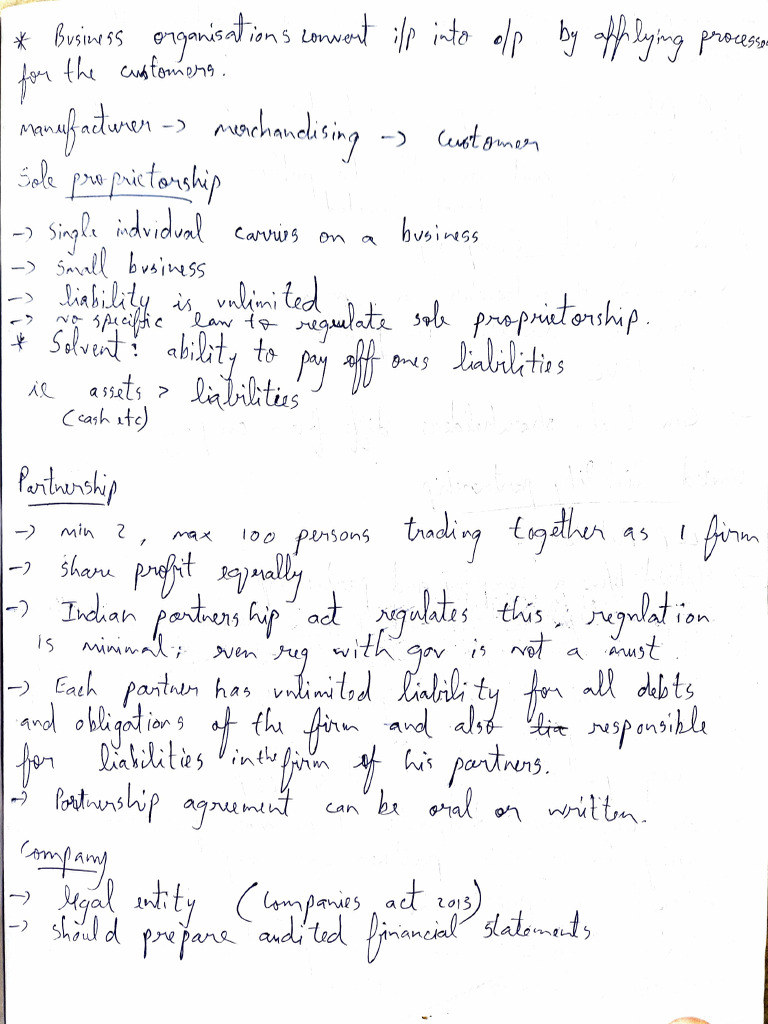 * Business organisations convert i/p into o/p by applying processes
for the customers.
manufacturer -> merchandising -> customer
Sole proprietorship
-> Single individual carries on a business
-> Small business
-> liability is unlimited
-> no specific law to regulate sole proprietorship.
* Solvent: ability to pay off ones liabilities
ie assets > liabilities
(cash etc)
Partnership
-> min 2, max 100 persons trading together as 1 firm
-> share profit equally
-> Indian partnership act regulates this. regulation
is minimal; even reg with gov is not a must.
-> Each partner has unlimited liability for all debts
and obligations of the firm and also lia responsible
for liabilities in the firm of his partners.
-> Partnership agreement can be oral or written.
Company
-> legal entity (Companies act 2013)
-> should prepare audited financial statements